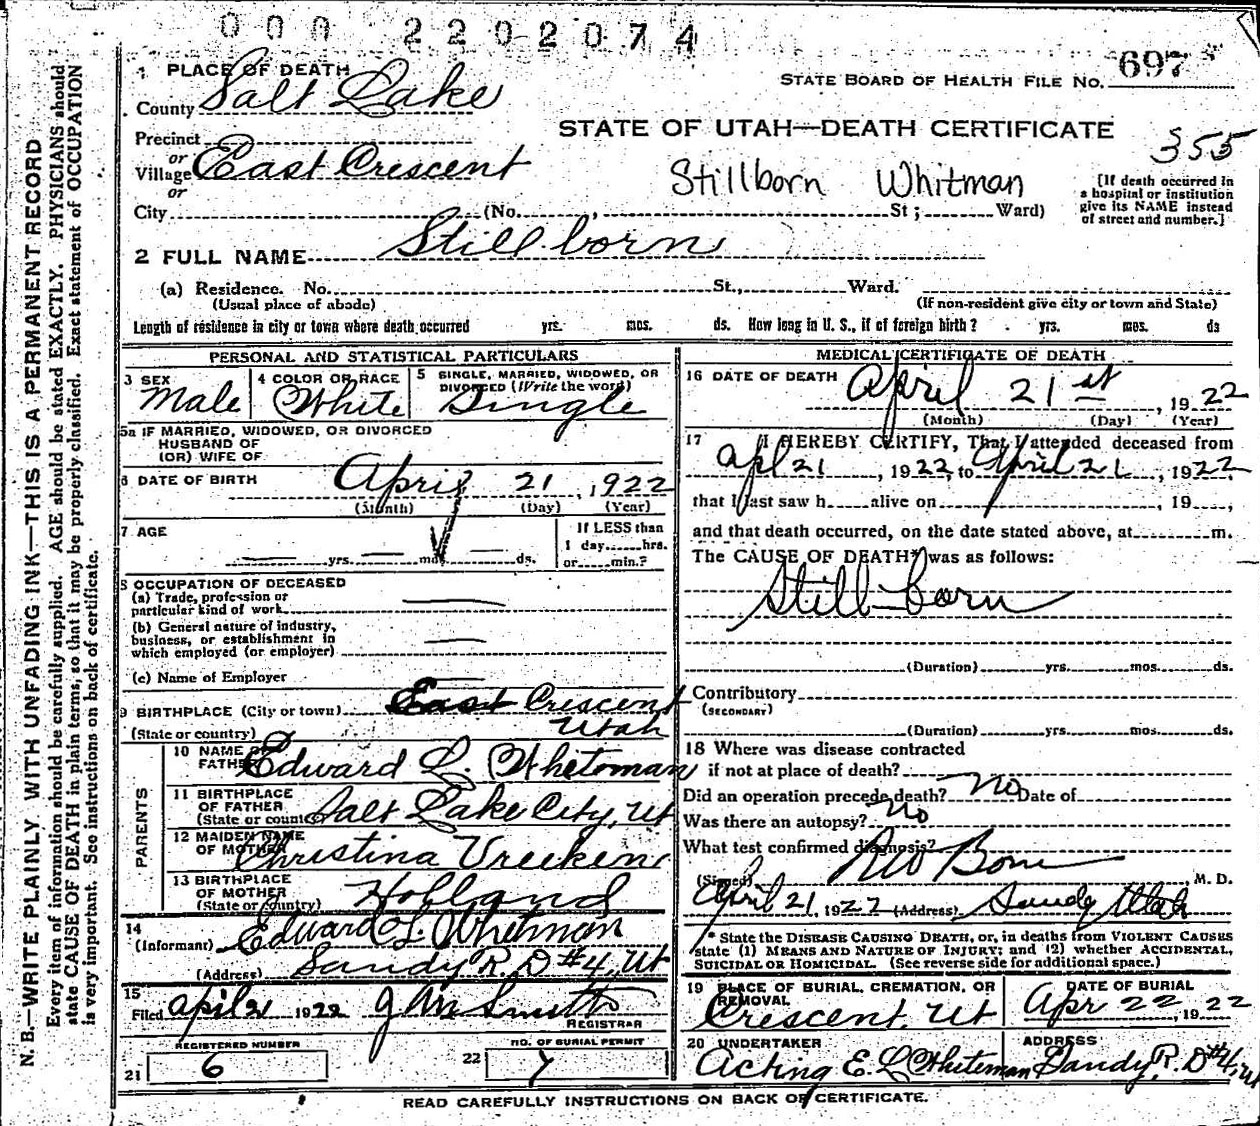 000 2202074
1 PLACE OF DEATH
STATE BOARD OF HEALTH FILE NO. 697
County Salt Lake
STATE OF UTAH—DEATH CERTIFICATE
355
Precinct
or
Village East Crescent
Stillborn Whitman
or
City (No. , St; Ward)
[If death occurred in
a hospital or institution
give its NAME instead
of street and number.]
2 FULL NAME Stillborn
(a) Residence. No. St., Ward.
(Usual place of abode) (If non-resident give city or town and State)
Length of residence in city or town where death occurred yrs. mos. ds. How long in U. S., if of foreign birth? yrs. mos. ds
PERSONAL AND STATISTICAL PARTICULARS
3 SEX Male
4 COLOR OR RACE White
5 SINGLE, MARRIED, WIDOWED, OR
DIVORCED (Write the word) Single
5a IF MARRIED, WIDOWED, OR DIVORCED
HUSBAND OF
(OR) WIFE OF
6 DATE OF BIRTH April 21, 1922
(Month) (Day) (Year)
7 AGE
yrs. mos. ds.
If LESS than
1 day, hrs.
or min.?
8 OCCUPATION OF DECEASED
(a) Trade, profession or
particular kind of work
(b) General nature of industry,
business, or establishment in
which employed (or employer)
(c) Name of Employer
9 BIRTHPLACE (City or town) East Crescent
(State or country) Utah
PARENTS
10 NAME OF
FATHER Edward L. Whiteman
11 BIRTHPLACE
OF FATHER
(State or country) Salt Lake City, Ut
12 MAIDEN NAME
OF MOTHER Christina Vreeken
13 BIRTHPLACE
OF MOTHER
(State or country) Holland
14
(Informant) Edward L Whiteman
(Address) Sandy R. D #4, Ut
15
Filed April 21 1922 Smith
REGISTRAR
REGISTERED NUMBER
21 6
NO. OF BURIAL PERMIT
22 7
MEDICAL CERTIFICATE OF DEATH
16 DATE OF DEATH April 21st, 1922
(Month) (Day) (Year)
17 I HEREBY CERTIFY, That I attended deceased from
Apl 21, 1922, to April 21, 1922
that I last saw h alive on , 19 ,
and that death occurred, on the date stated above, at m.
The CAUSE OF DEATH* was as follows:
Still-born
(Duration) yrs. mos. ds.
Contributory
(SECONDARY)
(Duration) yrs. mos. ds.
18 Where was disease contracted
if not at place of death?
Did an operation precede death? No Date of
Was there an autopsy? No
What test confirmed diagnosis?
(Signed) , M. D.
April 21, 1922 (Address) Sandy Utah
* State the DISEASE CAUSING DEATH, or, in deaths from VIOLENT CAUSES
state (1) MEANS AND NATURE OF INJURY; and (2) whether ACCIDENTAL,
SUICIDAL OR HOMICIDAL. (See reverse side for additional space.)
19 PLACE OF BURIAL, CREMATION, OR
REMOVAL
Crescent, Ut
DATE OF BURIAL
Apr 22, 1922
20 UNDERTAKER
Acting E. L Whiteman
ADDRESS
Sandy R. D #4, Ut
READ CAREFULLY INSTRUCTIONS ON BACK OF CERTIFICATE.
N. B.—WRITE PLAINLY WITH UNFADING INK—THIS IS A PERMANENT RECORD
Every item of information should be carefully supplied. AGE should be stated EXACTLY. PHYSICIANS should
state CAUSE OF DEATH in plain terms, so that it may be properly classified. Exact statement of OCCUPATION
is very important. See instructions on back of certificate.